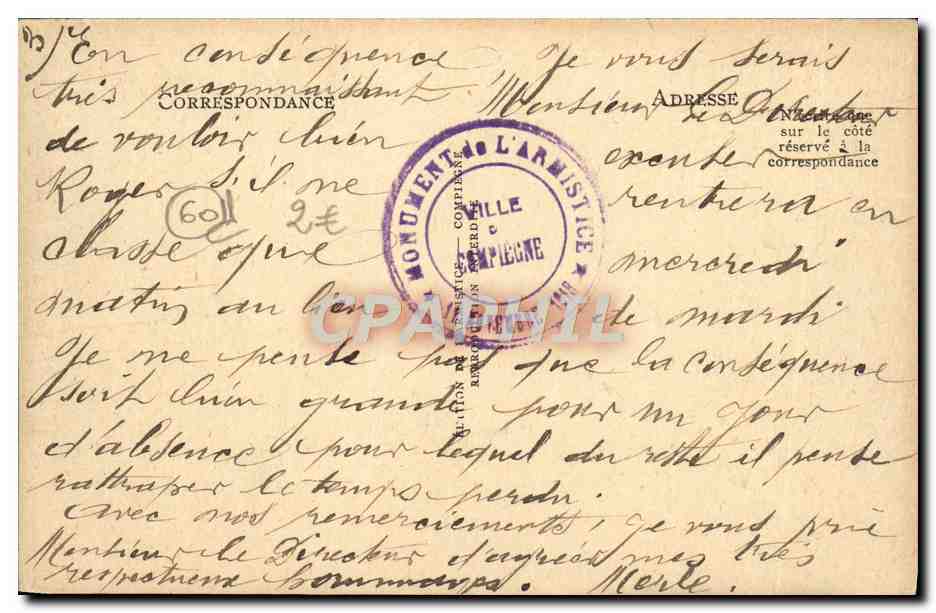 3) En conséquence Je vous serais
très reconnaissant Monsieur le Directeur
CORRESPONDANCE
ADRESSE
N'écrire que
sur le côté
réservé à la
correspondance
de vouloir bien excuser
Roger s'il ne rentrera en
classe que mercredi
matin au lieu de mardi
Je ne pense pas que la conséquence
soit bien grande pour un jour
d'absence pour lequel du reste il pense
rattraper le temps perdu.
Avec nos remerciements, je vous prie
Monsieur le Directeur d'agréer mes très
respectueux hommages. Merle.
60
2€
MONUMENT de L'ARMISTICE
VILLE
COMPIÈGNE
NOVEMBRE 1918
ARMISTICE — COMPIÈGNE
REPRODUCTION INTERDITE
CPAPHIL